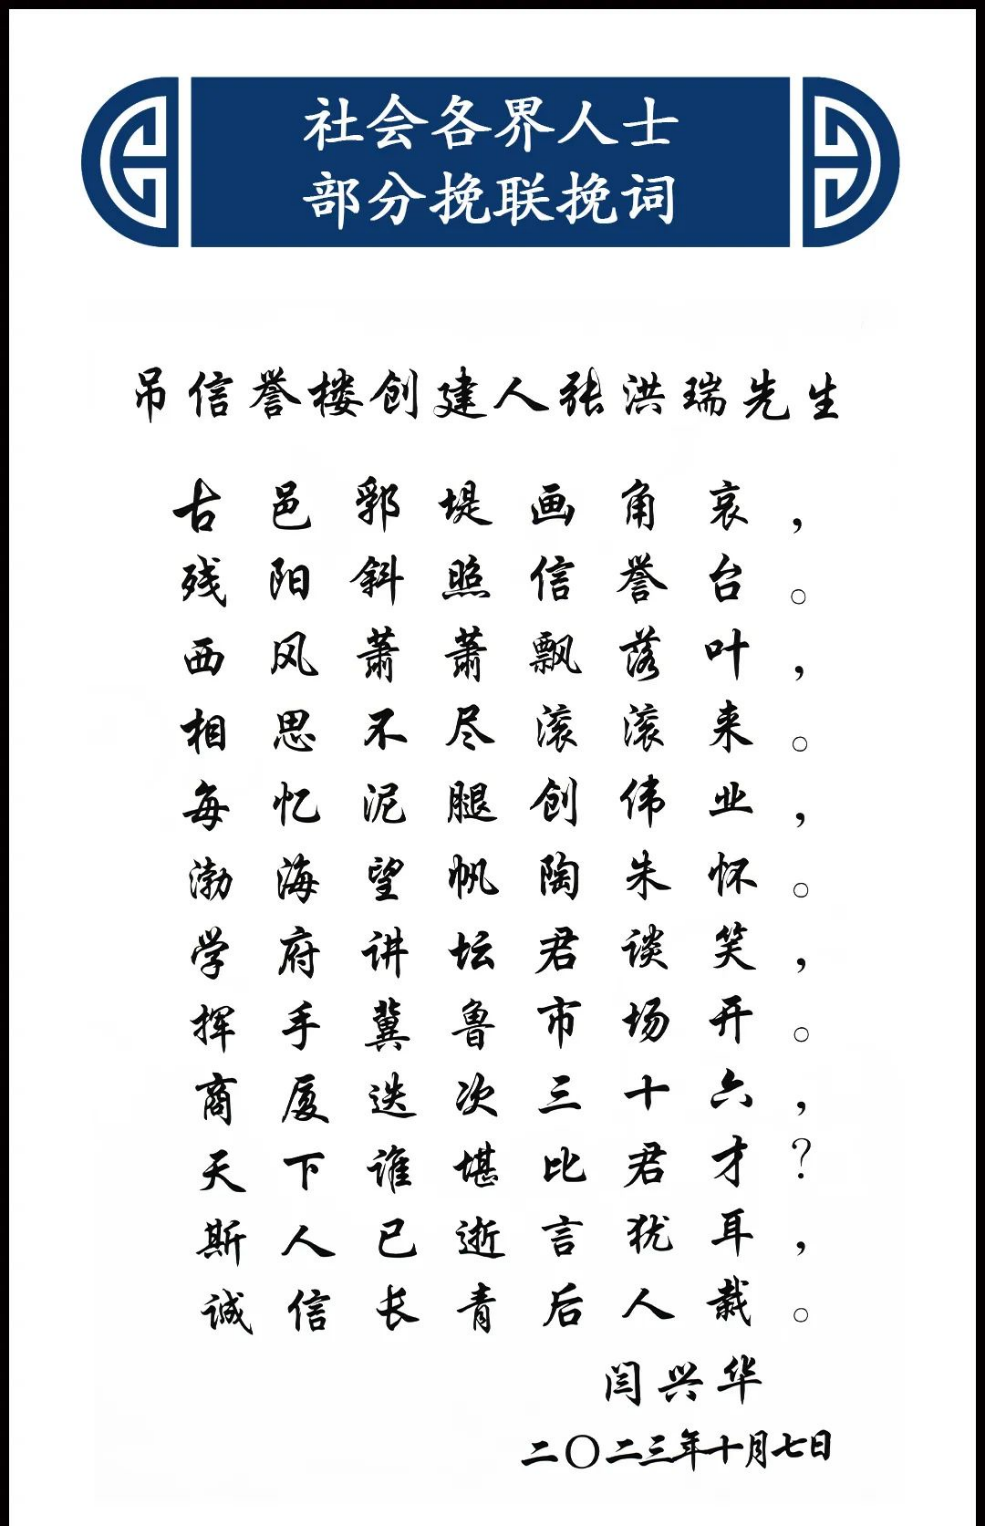 社会各界人士
部分挽联挽词
吊信誉楼创建人张洪瑞先生
古邑郛堤画角哀，
残阳斜照信誉台。
西风萧萧飘落叶，
相思不尽滚滚来。
每忆泥腿创伟业，
渤海望帆陶朱怀。
学府讲坛君谈笑，
挥手冀鲁市场开。
商厦迭次三十六，
天下谁堪比君才？
斯人已逝言犹耳，
诚信长青后人栽。
闫兴华
二〇二三年十月七日